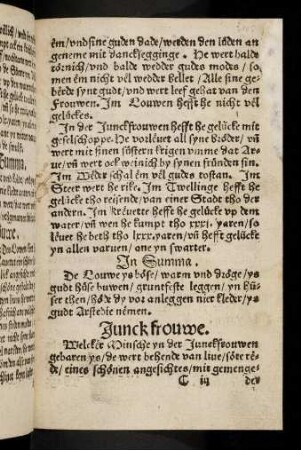 ém/ vnd sine guden dade/ werden den lüden an
geneme mit dancksegginge. He wert balde
törnich/ vnd balde wedder gudes modes/ so
men ém nicht vél wedder kellet/ Alle sine ge-
bérde synt gudt/ vnd wert leef gehat van den
Frouwen. Im Louwen hefft he nicht vél
gelückes.
In der Junckfrouwen hefft he gelücke mit
geselschoppe. He vorléuet all syne Bröder/ vñ
wert mit sinen süstern krigen vmme dat Ar-
ue/ vñ wert ock weinich by synen fründen sin.
Im Wéder schal ém vél gudes tostan. Im
Steer wert he rike. Im Twellinge hefft he
gelücke tho reisende/ van einer Stadt tho der
andern. Im Kréuette hefft he gelücke yp dem
water/ vñ wen he kumpt tho xxxi. yaren/ so
léuet he beth tho lxxx. yaren/ vñ hefft gelücke
yn allen varuen/ ane yn swarter.
In Summa.
De Louwe ys böse/ warm vnd dröge/ ys
gudt hüse buwen/ gruntfeste leggen/ yn hü-
ser then/ höde dy vor anleggen nier kleder/ ys
gudt Arstedie némen.
Junckfrouwe.
Welcker Minsche yn der Junckfrouwen
gebaren ys/ de wert behende van liue/ söter ré-
de/ eines schönen angesichtes/ mit gemenge-
C iij der